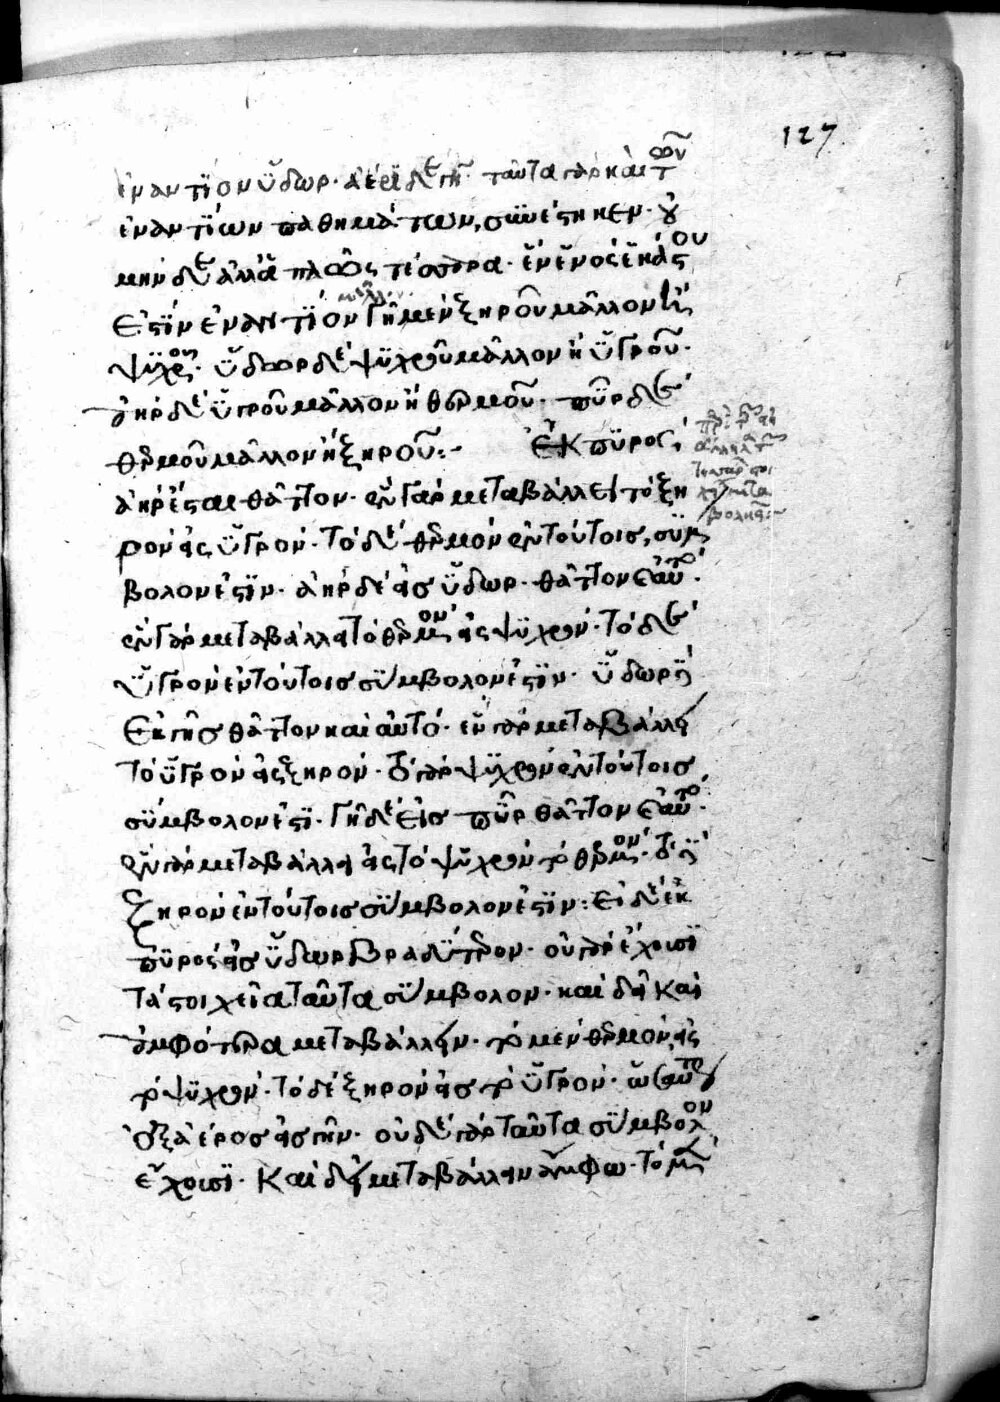 127
ἐναντίον ὕδωρ. ἀέρι δὲ γῆ. ταῦτα γὰρ καὶ τῶν
ἐναντίων παθημάτων, συνέστηκεν. οὐ
μὴν δὲ ἀλλὰ ἁπλῶς τέσσαρα. ἓν ἑνὸς ἕκαστου
ἐστὶν ἐναντίον γῆ μὲν ξηροῦ μᾶλλον ἢ
ψυχροῦ. ὕδωρ δὲ ψυχροῦ μᾶλλον ἢ ὑγροῦ.
ἀὴρ δὲ ὑγροῦ μᾶλλον ἢ θερμοῦ. πῦρ δὲ
θερμοῦ μᾶλλον ἢ ξηροῦ:~ Ἐκ πυρὸς
ἀὴρ ἔσται θᾶττον. ἓν γὰρ μεταβάλλει τὸ ξη
ρὸν εἰς ὑγρόν. τὸ δὲ θερμὸν ἐν τούτοις, σύμ
βολον ἐστίν. ἀὴρ δὲ εἰς ὕδωρ. θᾶττον ἑαυτό.
ἓν γὰρ μεταβάλλει τὸ θερμὸν εἰς ψυχρόν. τὸ δὲ
ὑγρὸν ἐν τούτοις σύμβολον ἐστίν. ὕδωρ δὲ
ἐκ γῆς θᾶττον καὶ αὐτό. ἓν γὰρ μεταβάλλει
τὸ ὑγρὸν εἰς ξηρόν. τὸ γὰρ ψυχρὸν ἐν τούτοις
σύμβολον ἐστί. γῆ δὲ εἰς πῦρ θᾶττον ἑαυτό.
ἓν γὰρ μεταβάλλει εἰς τὸ ψυχρὸν τὸ θερμόν. τὸ δὲ
ξηρὸν ἐν τούτοις σύμβολον ἐστίν: Εἰ δὲ ἐκ
πυρὸς εἰς ὕδωρ βραδύτερον. οὐ γὰρ ἔχουσι
τὰ στοιχεῖα ταῦτα σύμβολον. καὶ δεῖ καὶ
ἀμφότερα μεταβάλλειν. τὸ μὲν θερμὸν εἰς
τὸ ψυχρόν. τὸ δὲ ξηρὸν εἰς τὸ ὑγρόν. ὡσαύτως
ἐξ ἀέρος εἰς γῆν. οὐδὲ γὰρ ταῦτα σύμβολον
ἔχουσι. Καὶ δεῖ μεταβάλλειν ἄμφω. τὸ μὲν